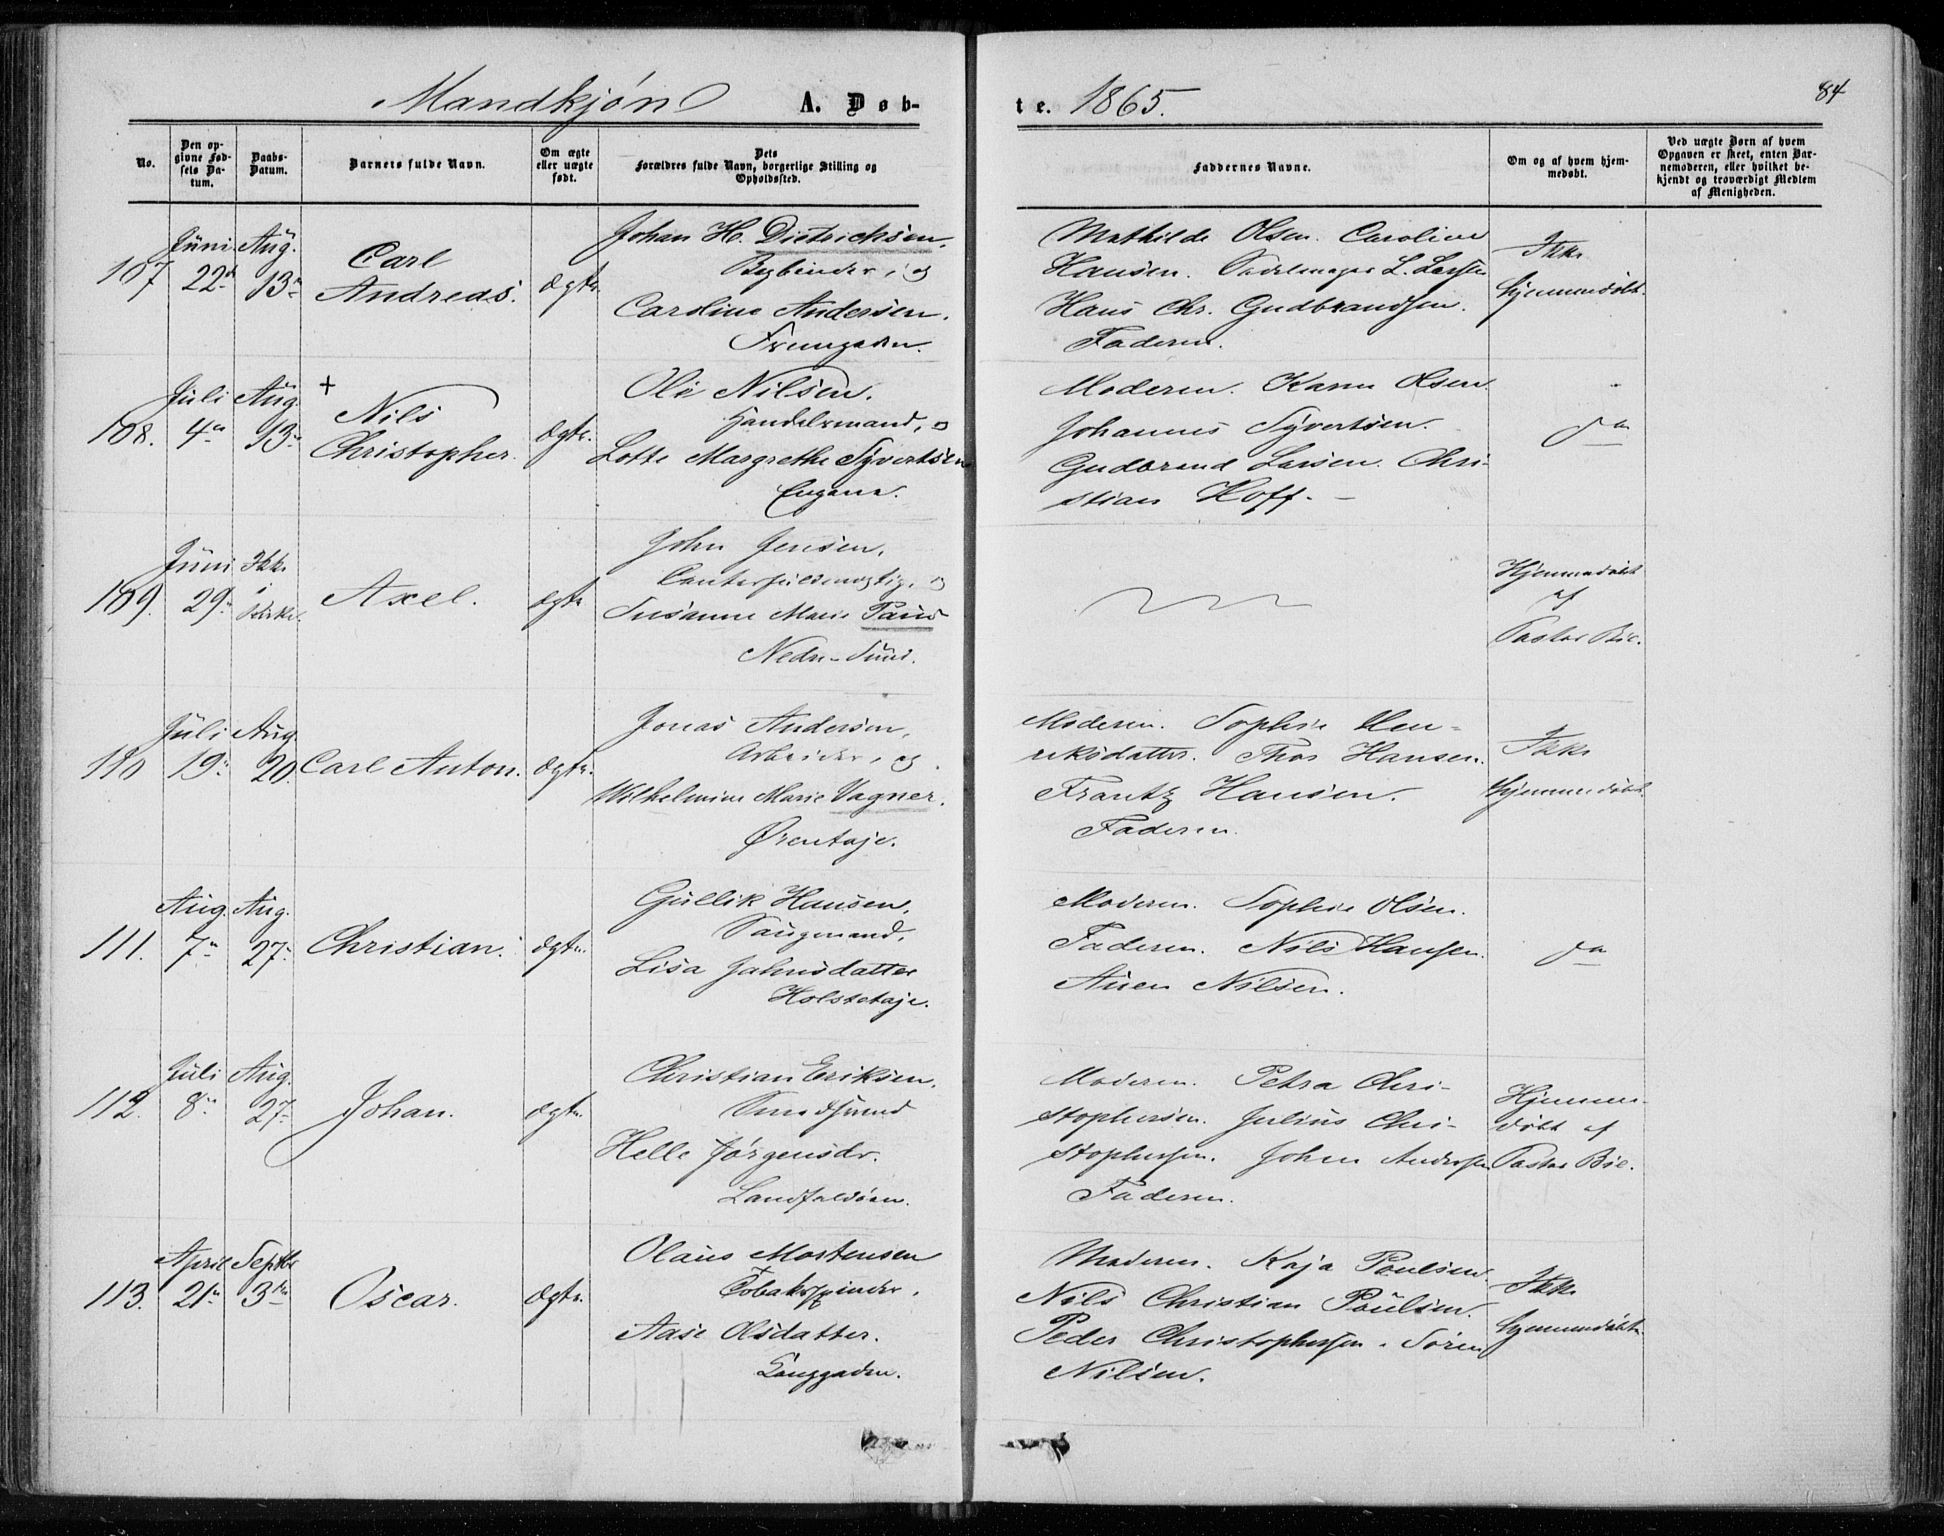 Mandkjøn A. Døbte. 1865. 84
No.
Den opgivne Fødsels Datum.
Daabs-Datum.
Barnets fulde Navn.
Om ægte eller uægte født.
Dets Forældres fulde Navn, borgerlige Stilling og Opholdssted.
Faddernes Navne.
Om og af hvem hjemmedøbt.
Ved uægte Børn af hvem Opgaven er skeet, enten Barnemoderen, eller hvilket bekjendt og troværdigt Medlem af Menigheden.
107
Juni 22de
Aug. 13de
Carl
Andreas.
ægte.
Johan H. Dietrichsen,
og
Caroline Andersen.
Mathilde Olsen. Caroline
Hansen. Sadelmager L. Larsen
Hans Chr. Gudbrandsen.
Faderen.
Ikke
hjemmedøbt.
108.
Juli 4de
Aug. 13de
+
Nils
Christopher.
ægte.
Ole Nilsen.
Handelsmand, o
Lotte Margrethe Syvertsen
Engene.
Moderen. Karen Olsen
Johannes Syvertsen.
Gudbrand Larsen. Chri-
stian Hoff. –
do
109.
Juni 29.
Ikke
i
Kirke.
Axel.
ægte
John Jensen,
og
Susanne Marie Paus
Nedre-Sund.
Hjemmedøbt
af
Pastor Bie.
110
Juli 19.
Aug. 20.
Carl Anton.
ægte.
Jonas Andersen,
Arbeider, og
Wilhelmine Marie Vagner.
Ørentaje.
Moderen. Sophie Hen-
riksdatter. Thor Hansen.
Frantz Hansen.
Faderen.
Ikke
hjemmedøbt.
111.
Aug. 7de
Aug. 27.
Christian.
ægte.
Gullik Hansen,
Saugmand,
Lisa Jahnsdatter
Holstetaje.
Moderen. Sophie Olsen.
Faderen. Nils Hansen.
Nilsen.
do
112.
Juli 8de
Aug. 27.
Johan.
ægte.
Christian Eriksen,
Smedsvend
Helle Jørgensdr.
Landfaldøen.
Moderen. Petra Chri-
stophersen. Julius Chri-
stophersen. Johan Andersen
Faderen.
Hjemme-
døbt af
Pastor Bie.
113.
April 21de
Septbr 3die
Oscar.
ægte.
Olaus Mortensen
Tobakspinder,
Aase Olsdatter.
Langgaden.
Moderen. Kaja Poulsen.
Nils Christian Poulsen.
Peder Christophersen. Søren
Nilsen.
Ikke
hjemmedøbt